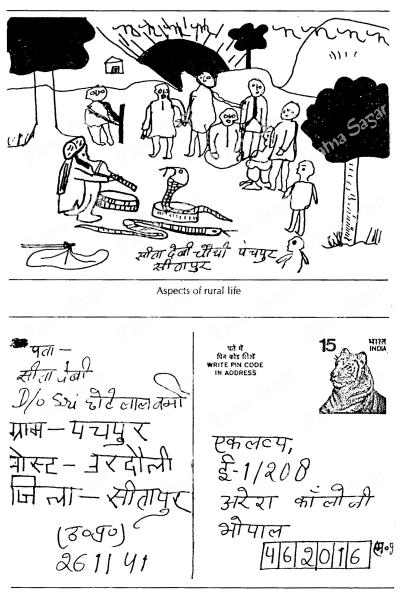 सीता देवी चौथी पंचपुर
सीतापुर
Aspects of rural life
पता —
सीता देवी
D/o Sri छोटे लाल वर्मा
ग्राम — पंचपुर
पोस्ट — उरदौली
जिला — सीतापुर
(उ०प्र०)
261141
पते में
पिन कोड लिखें
WRITE PIN CODE
IN ADDRESS
15 भारत
INDIA
एकलव्य,
ई-1/208
अरेरा कॉलोनी
भोपाल
462016